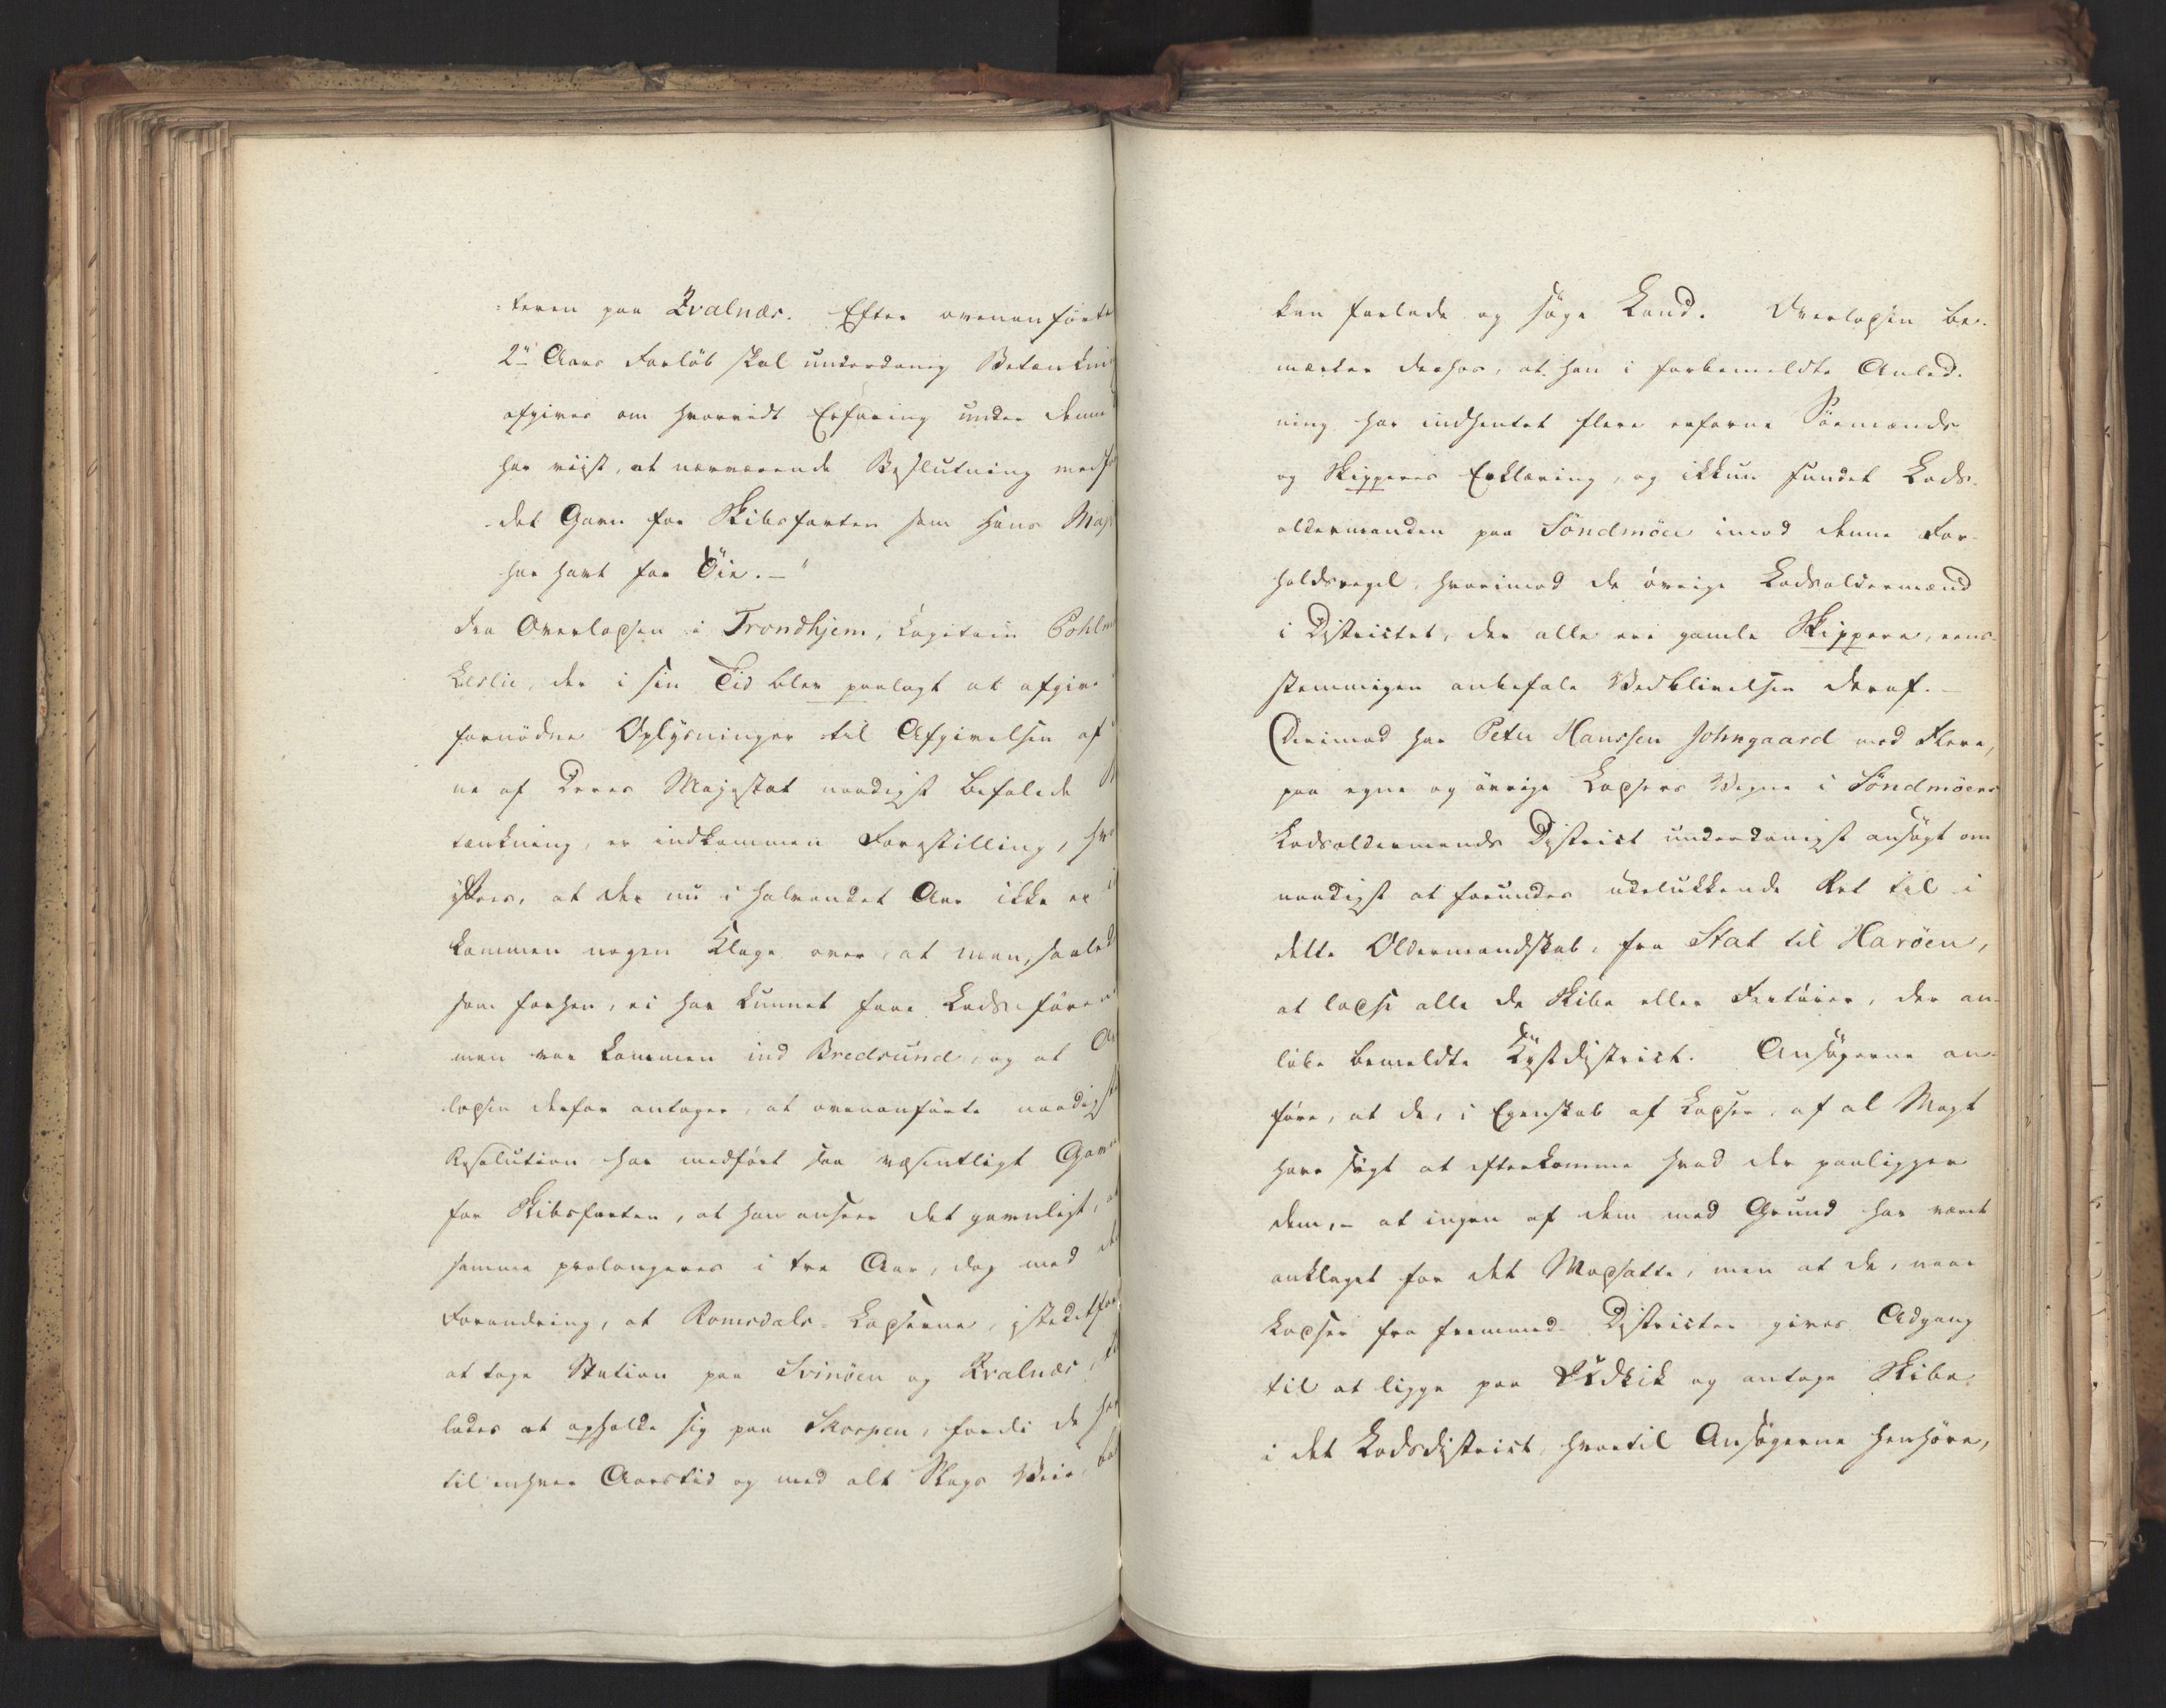 teren paa Qvalnæs. Efter ovenanførte
2de Aars Forløb skal underdanig Betænkni
afgives om hvorvidt Erfaring under denne
har viist, at nærværende Beslutning medfø
det Gavn for Skibsfarten som Hans Maj
har havt for Öie.–"
Fra Overlodsen i Trondhjem, Capitain Pohlm
Leslie, der i sin Tid blev paalagt at afgive
fornödne Oplysninger til Afgivelsen af
ne af Deres Majestæt naadigst befalede
tænkning, er indkommen Forestilling, hv
yttres, at der nu i halvandet Aar ikke er i
kommen nogen Klage over, at man, saaled
som forhen, ei har kunnet faae Lods för
man var kommen ind Bredsund, og at O
lodsen derfor antager, at ovenanførte naadigst
Resolution har medført saa væsentligt Gavn
for Skibsfarten, at han anseer det gavnligt, at
samme prolongeres i tre Aar, dog med de
Forandring, at Romsdals-Lodserne, istedetfor
at tage Station paa Svinöen og Qvalnæs,
lades at opholde sig paa Skorpen, fordi de her
til enhver Aarstid og med alt Slags Veir
kan forlade og søge Land. Overlodsen be-
mærker derhos, at han i forbemeldte Anled-
ning har indhentet flere erfarne Sömænds
og Skipperes Erklæring, og ikkun fundet Lods-
oldermanden paa Söndmöer imod denne For-
holdsregel, hvorimod de övrige Lodsoldermænd
i Districtet, der alle ere gamle Skippere, eens-
stemmigen anbefale Vedblivelsen deraf.–
Derimod har Peter Hanssen Johngaard med Flere,
paa egne og övrige Lodsers Vegne i Söndmöers
Lodsoldermands District underdanigst ansögt om
naadigst at forundes udelukkende Ret til i
dette Oldermandskab, fra Stat til Haröen,
at lodse alle de Skibe eller Fartöier, der an-
löbe bemeldte Kystdistrict. Ansögerne an-
före, at de, i Egenskab af Lodser, af al Magt
have sögt at efterkomme hvad der paaligger
dem,– at ingen af dem med Grund har været
anklaget for det Modsatte, men at de, naar
Lodser fra fremmede Districter gives Adgang
til at ligge paa Udkik og antage Skibe
i det Lodsdistrict, hvortil Ansögerne henhöre,